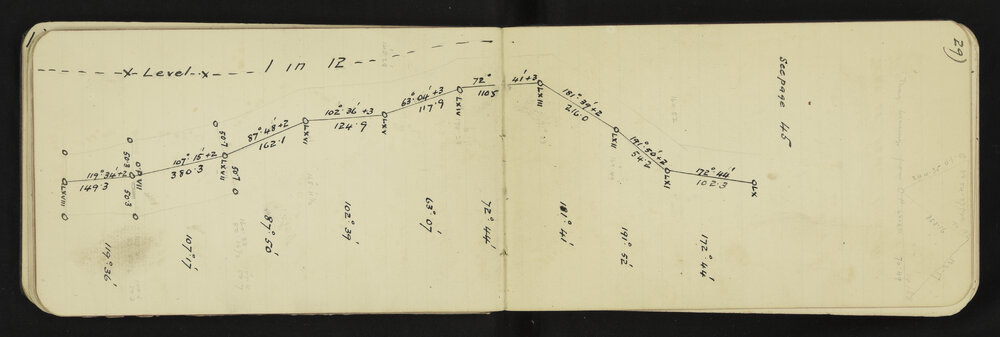 29)
See page 45
X Level X 1 in 12
LXVIII
119° 34' +2
149.3
503
P VII
503
107° 15' +2
380.3
507
LXVII
507
87° 48' +2
162.1
LXVI
102° 36' +3
124.9
LXV
63° 04' +3
117.9
LXIV
72° 41' +3
110.5
LXIII
181° 39' +2
216.0
LXII
191° 50' +2
54.2
LXI
72° 44'
102.3
LX
119° 36'
107° 17'
87° 50'
102° 39'
63° 07'
72° 44'
181° 41'
191° 52'
172° 44'